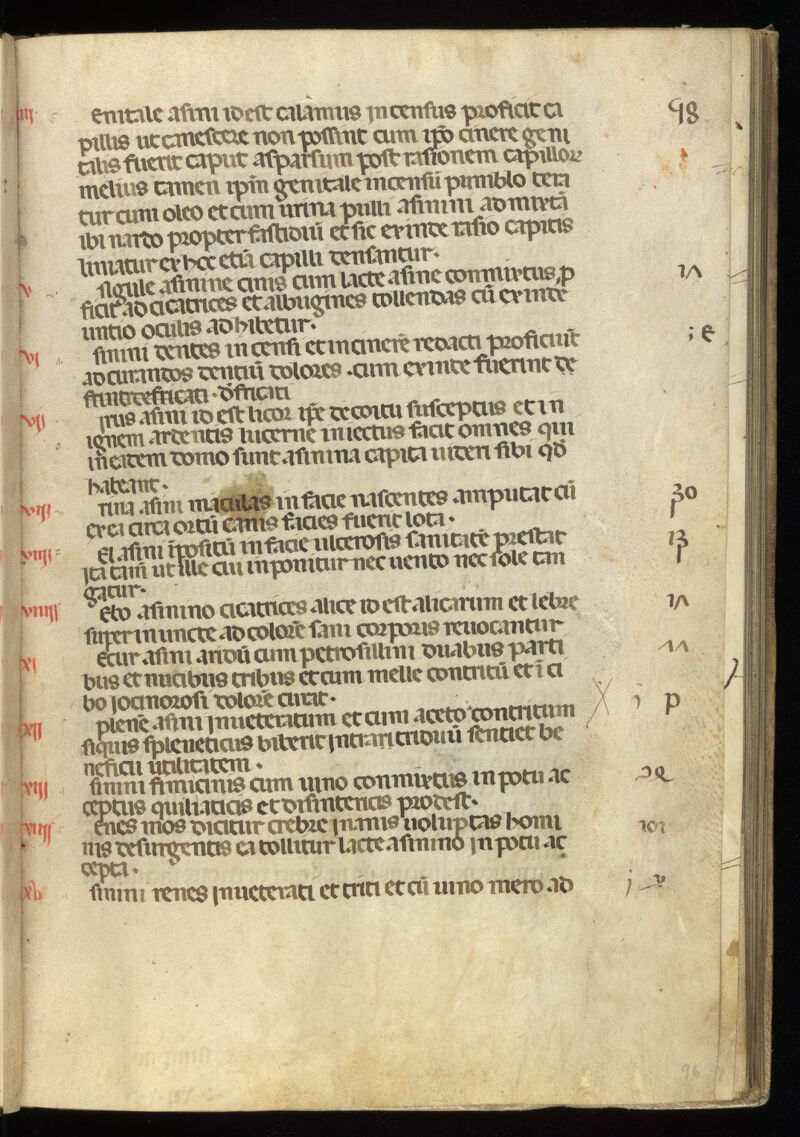 iiii enitale asini id est calamus incensus proficit ca 98
pillis ut canescere non possint cum ip̄o cinere geni
talis fuerit caput asparsum post rasionem capilloꝝ
melius tamen ip̄m genitale incensū plumblo tera
tur cum oleo et cum urina pulli asinini admixta
ibi nardo propter fastidiū et sic exinde rasio capitis
liniatur ex hoc etiā capilli densantur.
v ngule asinine cinis cum lacte asine conmixtus, p
ficit ad cicatrices et albugines tollendas cū exinde
untio oculis adhibetur.
vi sinini dentes incensi et incinerē redacti proficiūt
ad curandos dentiū dolores. cum exinde fuerint de
frintdefricati. d̄fricati
vii irus asini id est licor ip̄e de coitu susceptus et in
ignem ardentis lucerne iniectus facit omnes qui
in eadem domo sunt asinina capita uideri sibi qd̄
habeant.
viii rina asini maculas in facie nascentes amputat cū 30
ex ea circa ortū canis facies fuerit lota.
viiii el asini īpositū in facie ulcerosis sanitatē prestat
ita tam̄ ut ille cui inponitur nec uento nec sole tan
gatur.
viiiii ebo asinino cicatrices alice id est alicarum et lebre
super inuncte ad colorē sani corporis reuocantur
xi ecur asini aridū cum petrosillini duabus parti
bus et nucibus tribus et cum melle contritū et ī ci
bo iocinorosi dolorē curat.
xii plene asini inueteratum et cum aceto contritum
siquis spleneticus biberit intrari triduū sentiet be
neficii utilitatem.
xiii sinini fimi cinis cum uino conmixtus in potu ac
ceptus quiliaticis et disintericis prodest.
xiiii enes mos dicitur crebre inanis uoluptas homi
nis desurgentis ea tollitur lacte asinino in potu ac
cepta.
xv sinini renes inueterati et triti et cū uino mero ad
96